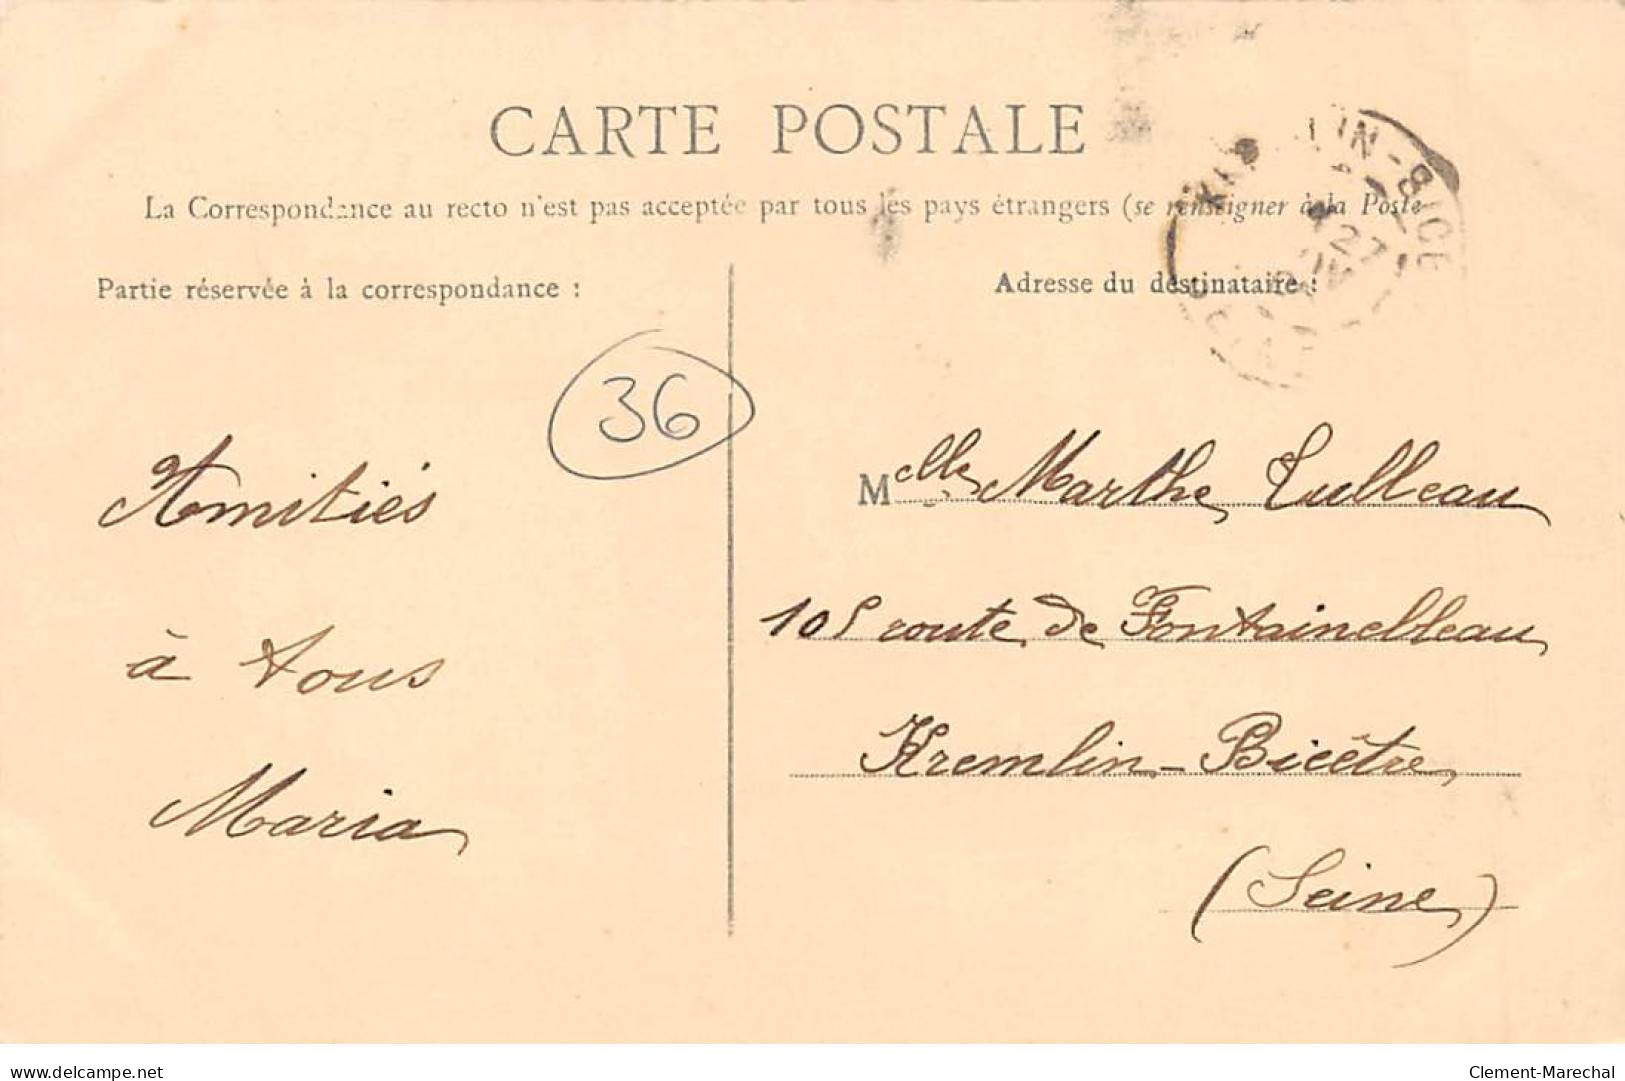 CARTE POSTALE
La Correspondance au recto n'est pas acceptée par tous les pays étrangers (se renseigner à la Poste
Partie réservée à la correspondance :
Adresse du destinataire :
36
Amitiés
à tous
Maria
Melle Marthe Tulleau
105 route de Fontainebleau
Kremlin-Bicêtre
(Seine)
KREMLIN-BICE
27
delcampe.net
Clement-Marechal